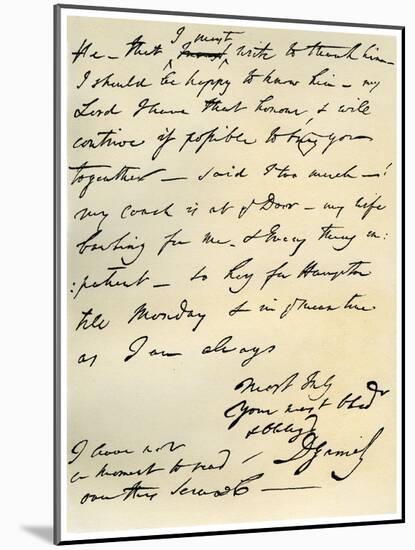 I must
He - that must write to thank him -
I should be happy to know him - my
Lord I have that honour, & will
contrive if possible to bring you
together - said I too much - !
my coach is at y Door - my wife
bawling for me, & Every thing im:
:patient - so hey for Hampton
till Monday & in y mean time
as I am always
Most truly
your most Obd
& Obligd
D Garrick
I have not
a moment to read
over this Scrawl